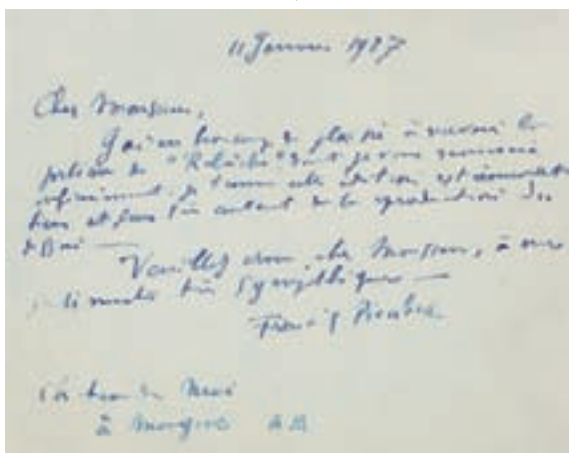 11 Janvier 1927
Cher Monsieur,
J'ai eu beaucoup de plaisir à recevoir la
partition de "Relâche" dont je vous remercie
infiniment. je cette édition est
très et suis très content de la reproduction du
Veuillez croire, cher Monsieur, à mes
sentiments très sympathiques —
Francis Picabia
de Mai
à Mougins A.M.